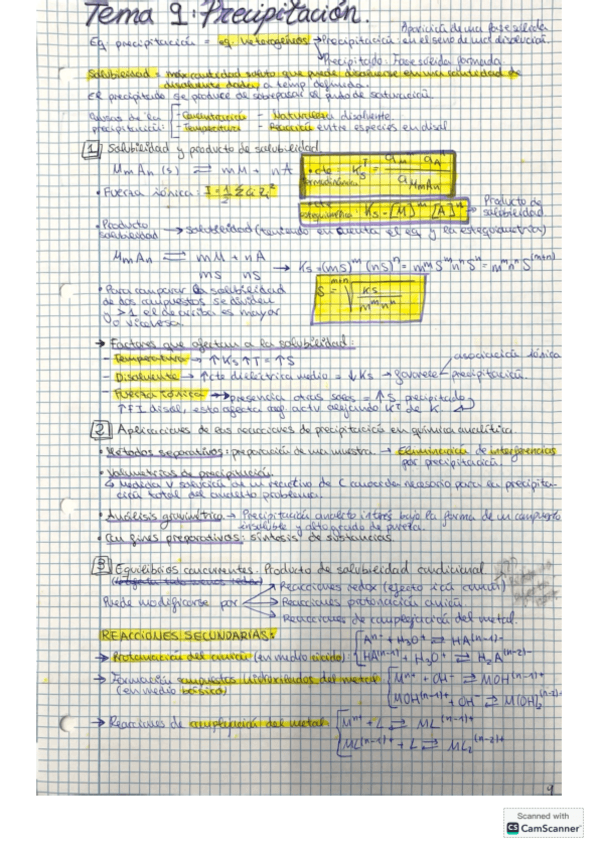 Tema 9: Precipitación.
Eq precipitación = eq. heterogéneos → Precipitación: Aparición de una fase sólida en el seno de una disolución.
↘ Precipitado: Fase sólida formada
Solubilidad = max cantidad soluto que puede disolverse en una cantidad de
disolvente dada, a temp definida.
El precipitado se produce de sobrepasar el punto de saturación.
Causas de la precipitación: - Concentración - Naturaleza disolvente
- Temperatura - Reacción entre especies en disol.
1 Solubilidad y producto de solubilidad.
MmAn (s) ⇌ mM + nA
• cte termodinámica: Ks^T = aM^m aA^n / aMmAn
• Fuerza iónica: I = 1/2 Σ Ci Zi²
• cte estequiométrica: Ks = [M]^m [A]^n → Producto de solubilidad.
• Producto solubilidad → solubilidad (teniendo en cuenta el eq y la estequiometría)
MmAn ⇌ mM + nA
mS nS
→ Ks = (mS)^m (nS)^n = m^m S^m n^n S^n = m^m n^n S^(m+n)
• Para comparar la solubilidad
de dos compuestos se dividen
y >1 el de arriba es mayor
o viceversa
S = ^(m+n)√(Ks / m^m n^n)
→ Factores que afectan a la solubilidad:
- Temperatura → ↑Ks ↑T = ↑S
- Disolvente → ↑cte dieléctrica medio = ↓Ks → favorece asociación iónica
precipitación.
- Fuerza iónica → presencia otras sales = ↑S precipitado
↑F I disol, esto afecta coef. activ alejando K^T de K.
2 Aplicaciones de las reacciones de precipitación en química analítica.
• Métodos separativos: preparación de una muestra → Eliminación de interferencias
por precipitación.
• Volumetrías de precipitación.
↳ Medida V solución de un reactivo de C conocida necesario para la precipita-
ción total del analito problema.
• Análisis gravimétrico → Precipitación analito interés bajo la forma de un compuesto
insoluble y alto grado de pureza.
• Con fines preparativos: síntesis de sustancias.
3 Equilibrios concurrentes. Producto de solubilidad condicional
Puede modificarse por → Reacciones redox (efecto ión común)
→ Reacciones protonación anión
→ Reacciones de complejación del metal.
REACCIONES SECUNDARIAS:
→ Protonación del anión (en medio ácido) [A^n- + H3O+ ⇌ HA^(n-1)-
HA^(n-1)- + H3O+ ⇌ H2A^(n-2)-
→ Formación compuestos hidroxilados del metal
(en medio básico)
[M^n+ + OH- ⇌ MOH^(n-1)+
MOH^(n-1)+ + OH- ⇌ M(OH)2^(n-2)+
→ Reacciones de complejación del metal [M^n+ + L ⇌ ML^(n-1)+
ML^(n-1)+ + L ⇌ ML2^(n-2)+
9
Scanned with
CS CamScanner